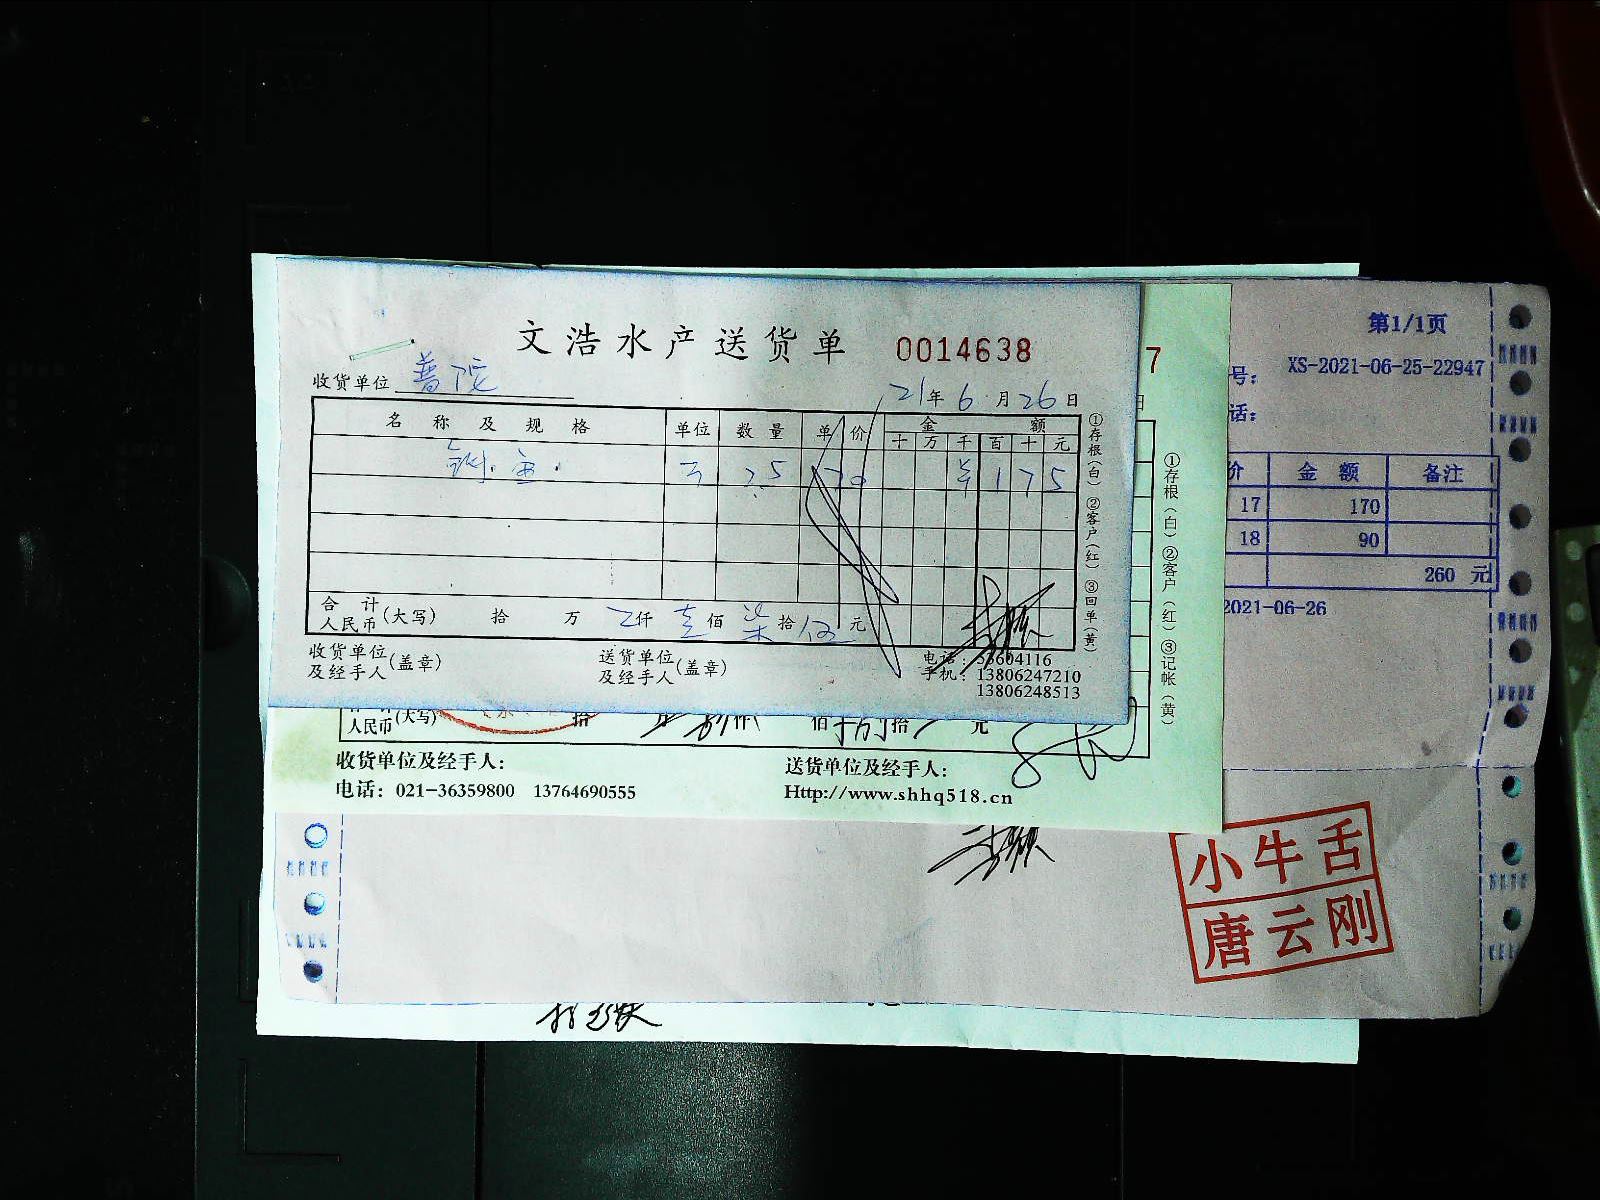 文浩水产送货单 0014638
收货单位 普陀
21年 6月 26日
名称及规格 单位 数量 单价 金额
十 万 千 百 十 元
2.5 70 ¥ 1 7 5
合计
人民币(大写) 拾 万 仟 壹佰 柒拾 伍元
收货单位
及经手人(盖章)
送货单位
及经手人(盖章)
手机:13806247210
13806248513
①存根(白) ②客户(红) ③回单(黄)
7
日
①存根(白) ②客户(红) ③记帐(黄)
人民币(大写) 拾 佰 拾 元
收货单位及经手人:
送货单位及经手人:
电话: 021-36359800 13764690555
Http://www.shhq518.cn
第1/1页
号: XS-2021-06-25-22947
话:
价 金额 备注
17 170
18 90
260 元
2021-06-26
小牛舌
唐云刚